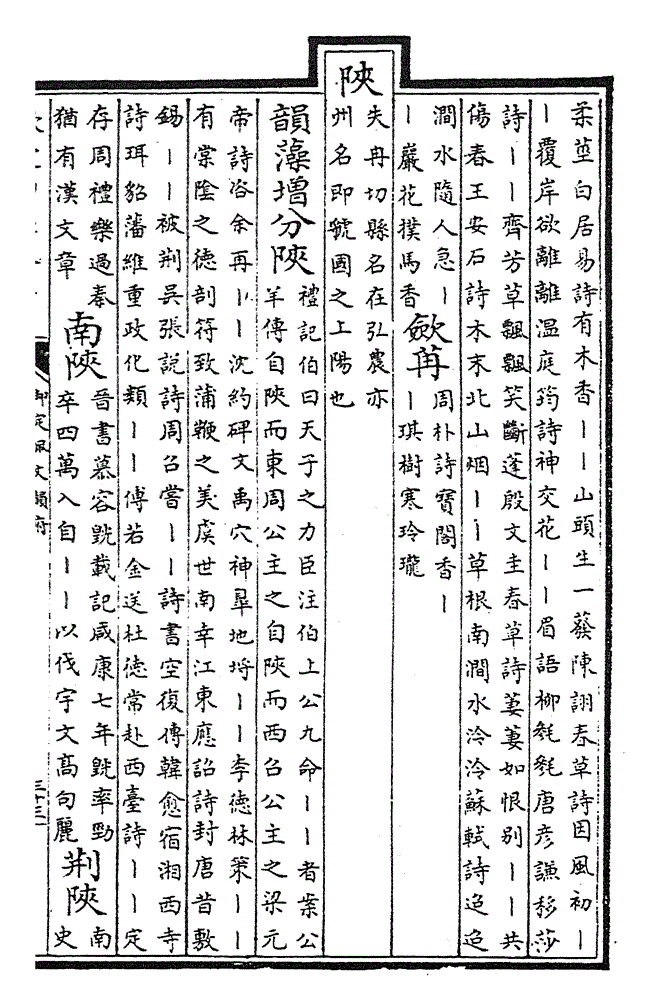 柔莖白居易詩有木香丨丨山頭生一蕟陳翃春草詩因風初丨
丨覆岸欲離離溫庭筠詩神交花丨丨眉語柳毿毿唐彥謙移莎
詩丨丨齊芳草飄飄笑斷蓬殷文圭春草詩萋萋如恨別丨丨共
傷春王安石詩木末北山烟丨丨草根南澗水泠泠蘇軾詩迢迢
澗水隨人急丨
丨巖花撲馬香
歛苒
周朴詩寶閣香丨
丨琪樹寒玲瓏
陜
失冉切縣名在弘農亦
州名即虢國之上陽也
韻藻增分陜
禮記伯曰天子之力臣注伯上公九命丨丨者案公
羊傳自陜而東周公主之自陜而西召公主之梁元
帝詩咨余再丨丨沈約碑文禹穴神皐地埒丨丨李德林策丨丨
有棠陰之德剖符致蒲鞭之美虞世南幸江東應詔詩封唐昔敷
錫丨丨被荆吳張說詩周召嘗丨丨詩書空復傳韓愈宿湘西寺
詩珥貂藩維重政化類丨丨傅若金送杜德常赴西臺詩丨丨定
存周禮樂過秦
猶有漢文章
南陜
晉書慕容皝載記咸康七年皝率勁
卒四萬入自丨丨以伐宇文高句麗
荆陜
南
史
御定佩文韻府
三十三